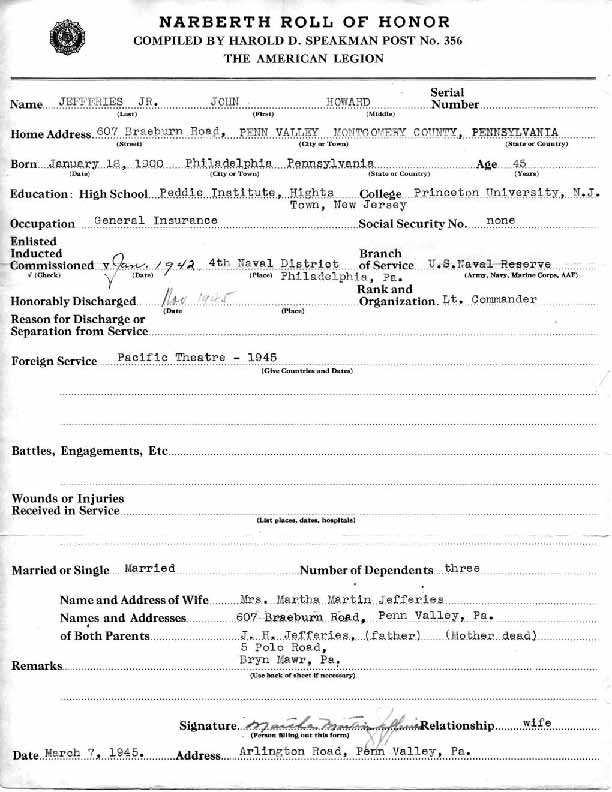 NARBERTH ROLL OF HONOR
COMPILED BY HAROLD D. SPEAKMAN POST No. 356
THE AMERICAN LEGION
Name JEFFERIES JR. JOHN HOWARD Serial Number
(Last) (First) (Middle)
Home Address 607 Braeburn Road, PENN VALLEY MONTGOMERY COUNTY, PENNSYLVANIA
(Street) (City or Town) (State or Country)
Born January 18, 1900 Philadelphia Pennsylvania Age 45
(Date) (City or Town) (State or Country) (Years)
Education: High School Peddie Institute, Hights College Princeton University, N.J.
Town, New Jersey
Occupation General Insurance Social Security No. none
Enlisted
Inducted Branch
Commissioned v Jan. 1942 4th Naval District of Service U.S.Naval Reserve
√ (Check) (Date) (Place) Philadelphia, Pa. (Army, Navy, Marine Corps, AAF)
Rank and
Honorably Discharged Nov 1945 Organization Lt. Commander
(Date (Place)
Reason for Discharge or
Separation from Service
Foreign Service Pacific Theatre - 1945
(Give Countries and Dates)
Battles, Engagements, Etc
Wounds or Injuries
Received in Service
(List places, dates, hospitals)
Married or Single Married Number of Dependents three
Name and Address of Wife Mrs. Martha Martin Jefferies
Names and Addresses 607 Braeburn Road, Penn Valley, Pa.
of Both Parents J. H. Jefferies, (father) (Mother dead)
5 Polo Road,
Remarks Bryn Mawr, Pa.
(Use back of sheet if necessary)
Signature Martha Martin Jefferies Relationship wife
(Person filling out this form)
Date March 7, 1945. Address Arlington Road, Penn Valley, Pa.